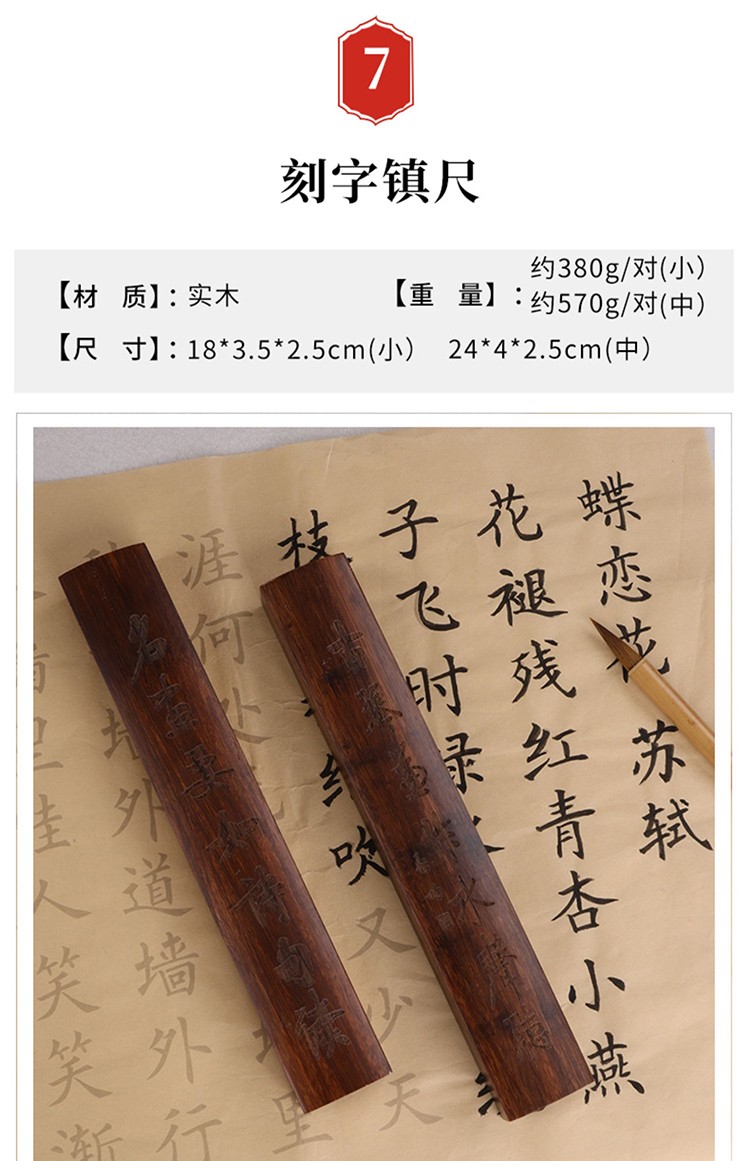 7
刻字镇尺
【材 质】：实木
【重 量】：约380g/对(小)
约570g/对(中)
【尺 寸】：18*3.5*2.5cm(小) 24*4*2.5cm(中)
蝶恋花 苏轼
花褪残红青杏小燕
子飞时绿
枝
吹
又少天
涯何处
里
墙外道
墙外行
人笑笑渐
名画要如诗句读
古琴兼作水声听